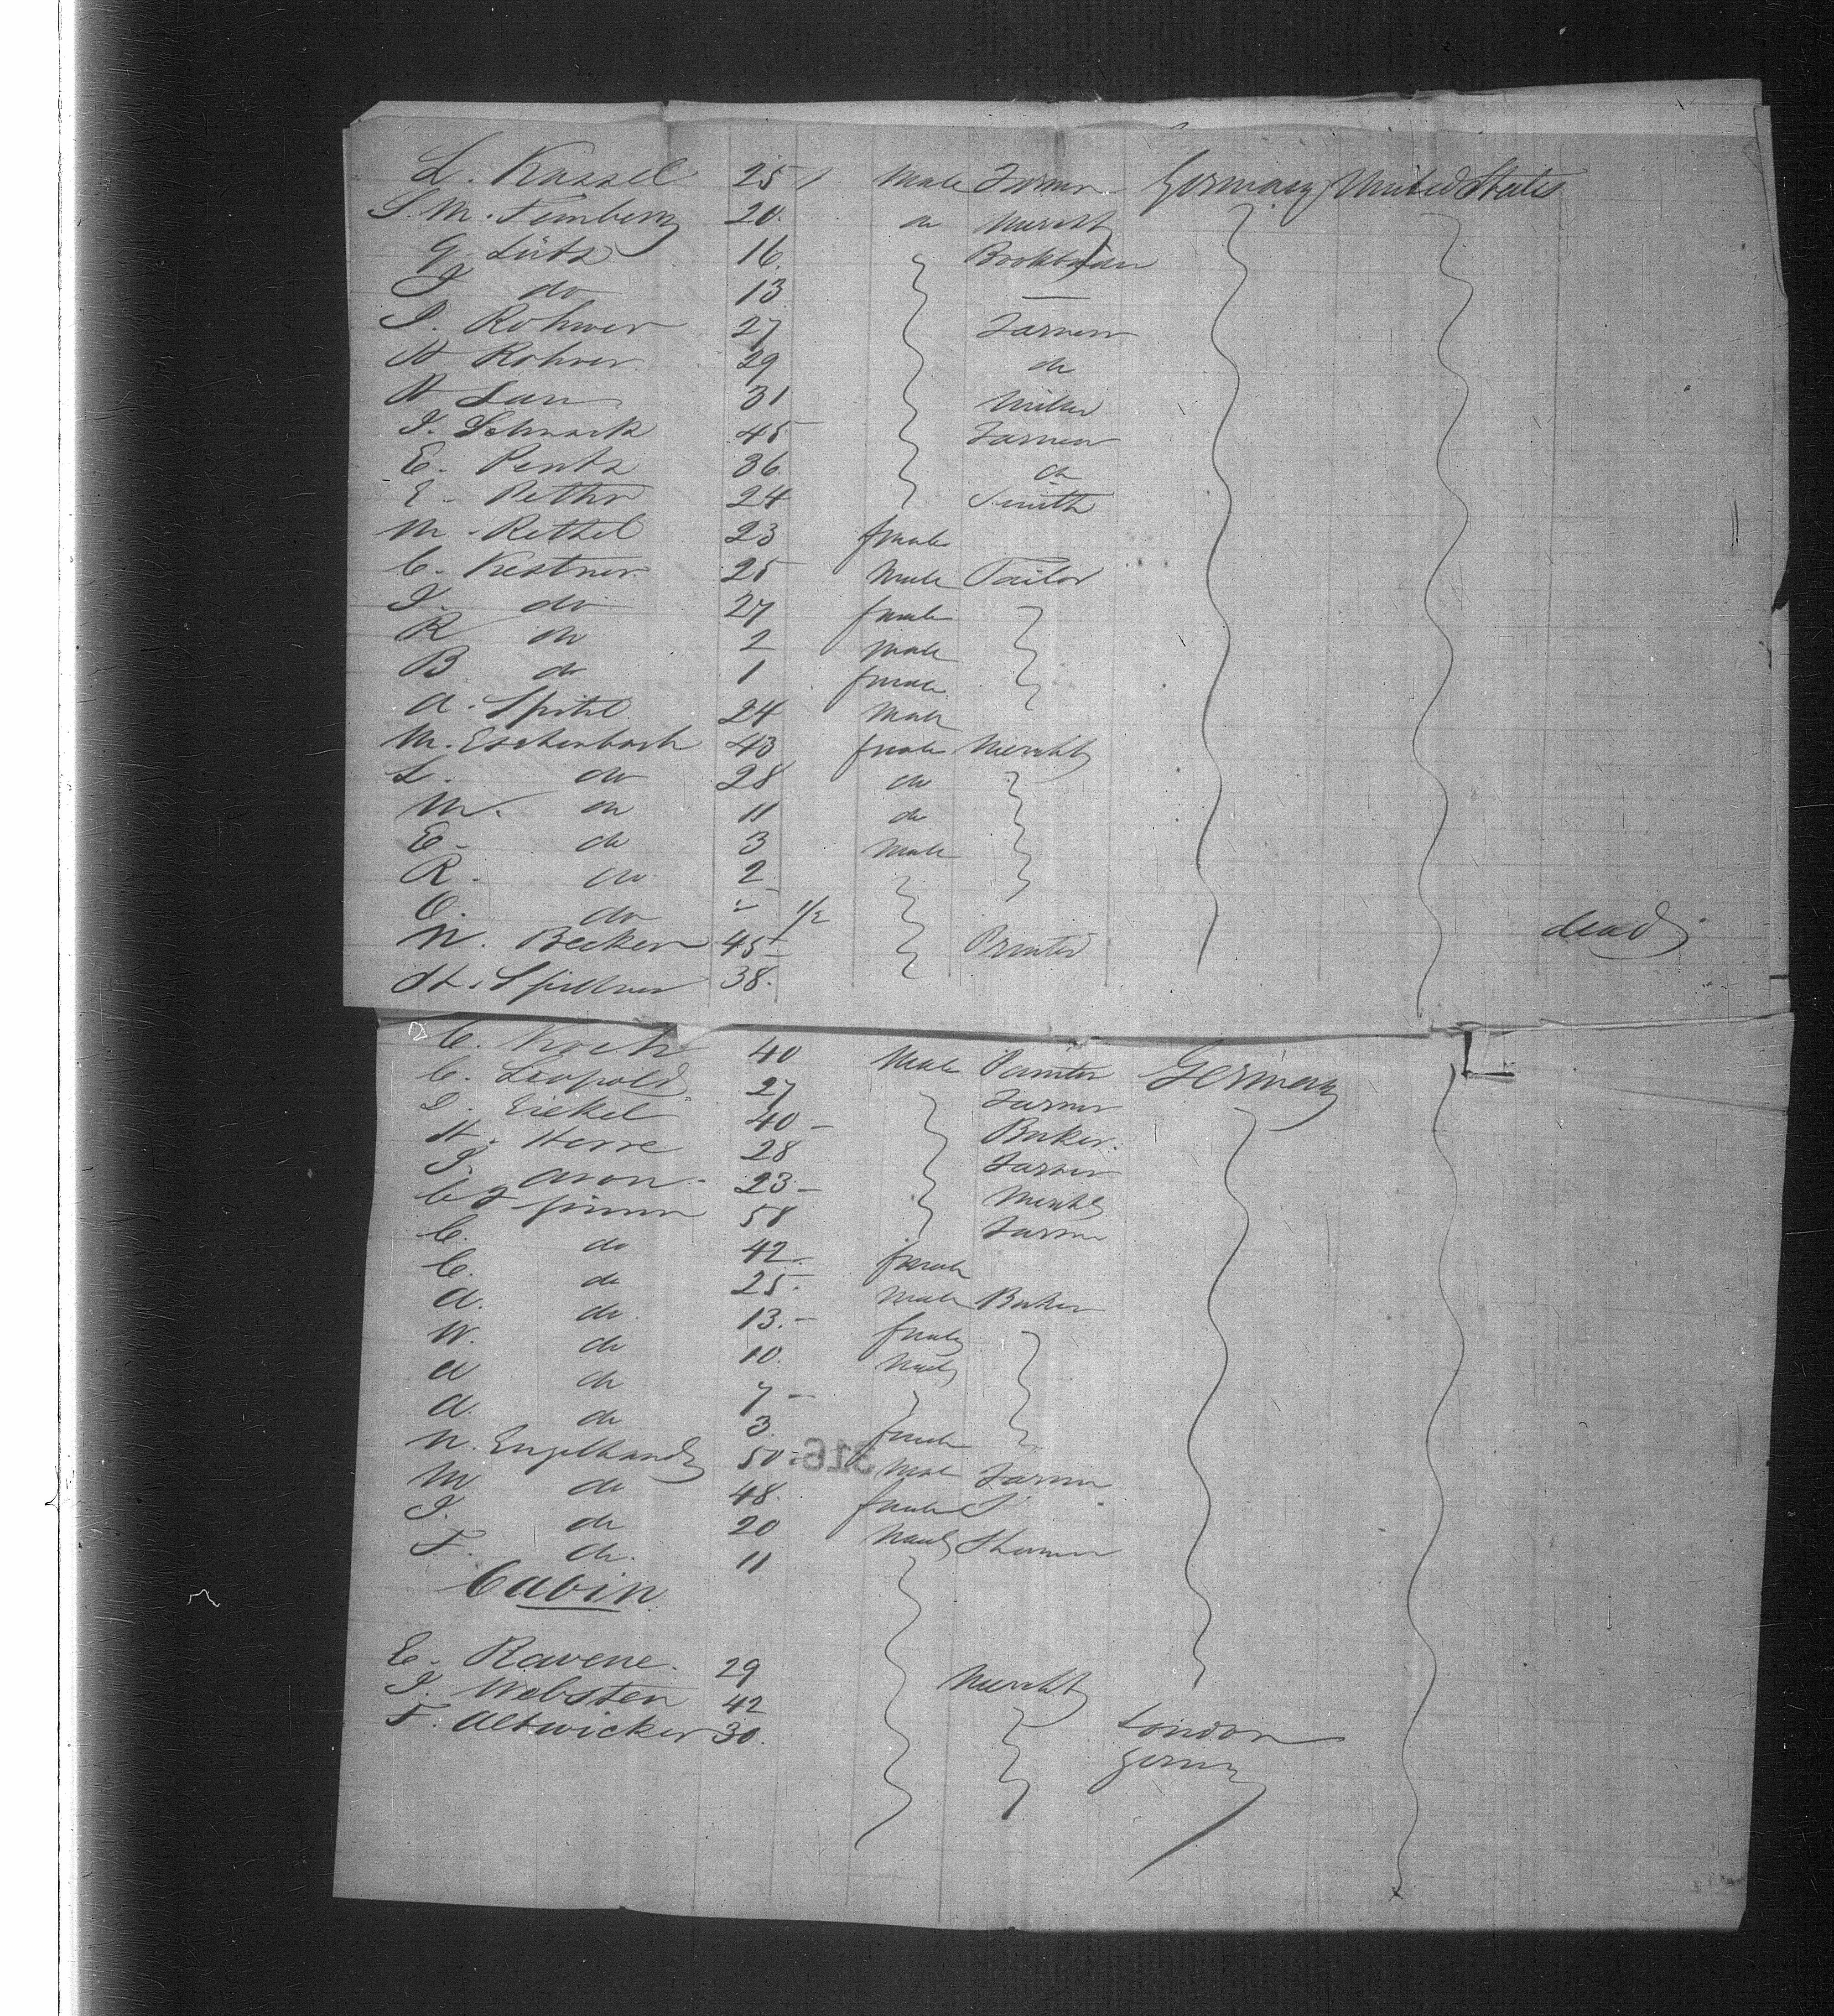 L. Kassel 25 / Male Farmer Germany United States
S. M. Feinberg 20. do Mercht
G. Lütz 16 Bookbinder
J do 13 —
P. Rohwer 27 Farmer
H Rohver. 29 do
H 31 Miller
J. Schnack 45 Farmer
E. Pentz 36 do
E. 24 Smith
M. Rethel 23 female
C. Kestner. 25 Male Tailor
J. do 27 female
R do 2 Male
B do 1 female
A. Spitzl 24 Male
M. Eschenbach 43 female Mercht
L. do 28 do
M. do 11 do
E. do 3 Male
R. do 2
O. do - 1/2 dead
N. Becker 45 Printer
H. 38.
C. Koch 40 Male Painter Germany
C. Leopold 27 Farmer
40 - Baker.
H. Herre 28 Farmer
J. Aron. 23 - Mercht
58 Farmer
C. do 42. female
C. do 25. Male Baker
A. do 13. - female
W. do 10. Male
A do 7 -
A. do 3. female
N. Engelhand 50 Male Farmer
M do 48. female
J. do 20 Male
F. do. 11
Cabin.
E. Ravene. 29 Mercht
J. Webster 42 London
F. Altwicker 30. Germ
316